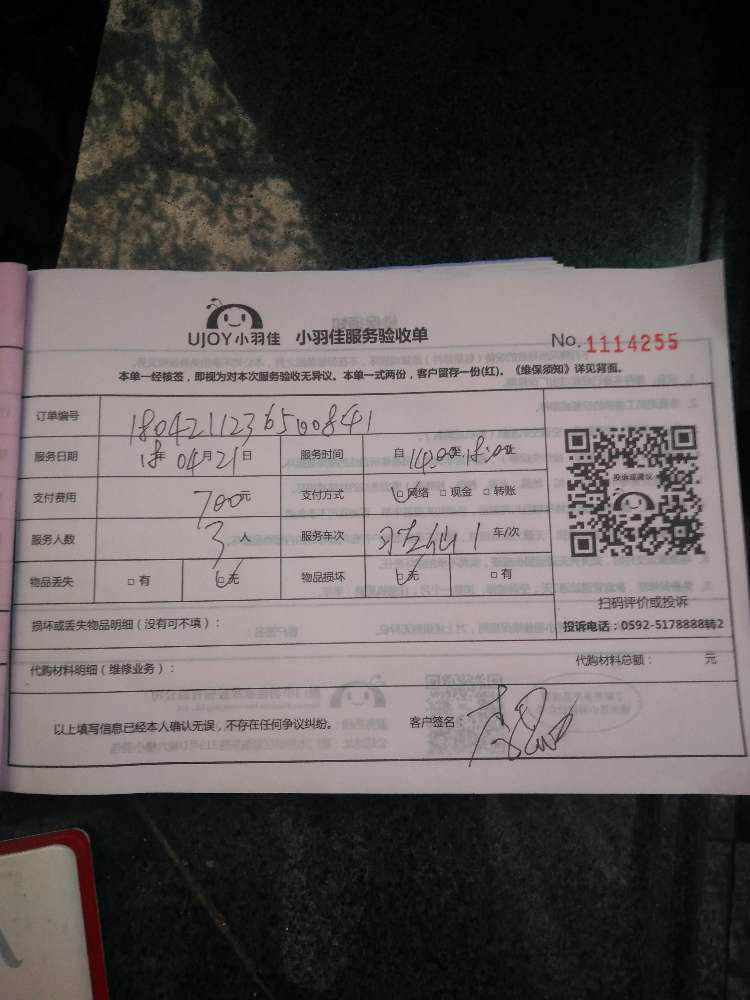 UJOY小羽佳 小羽佳服务验收单 No. 1114255
本单一经核签，即视为对本次服务验收无异议。本单一式两份，客户留存一份(红)。《维保须知》详见背面。
订单编号 18042112365100841
服务日期 18年 04月 21日 服务时间 自 14:00至 18:00止
支付费用 700元 支付方式 □网络 □现金 □转账
服务人数 3人 服务车次 1 车/次
物品丢失 □有 □无 物品损坏 □无 □有
投诉或建议
扫码评价或投诉
投诉电话：0592-5178888转2
损坏或丢失物品明细（没有可不填）：
代购材料明细（维修业务）： 代购材料总额： 元
以上填写信息已经本人确认无误，不存在任何争议纠纷。 客户签名：